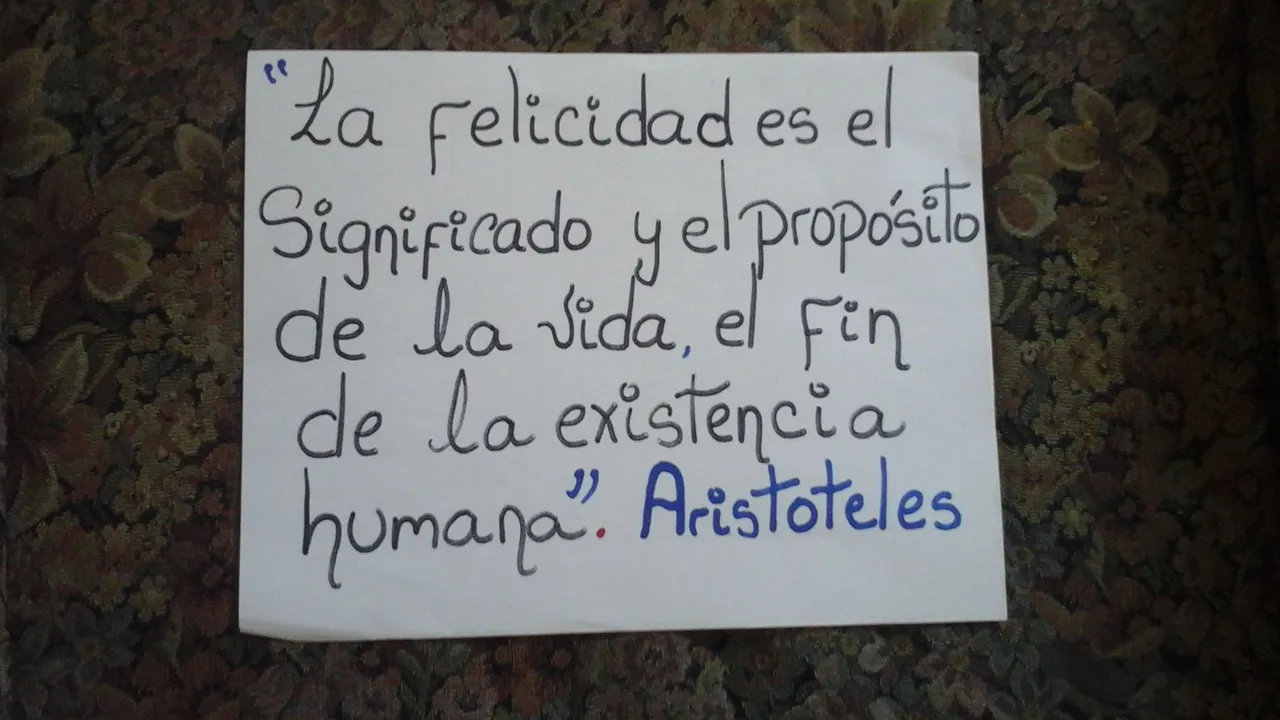 "La felicidad es el
Significado y el propósito
de la vida, el fin
de la existencia
humana". Aristoteles